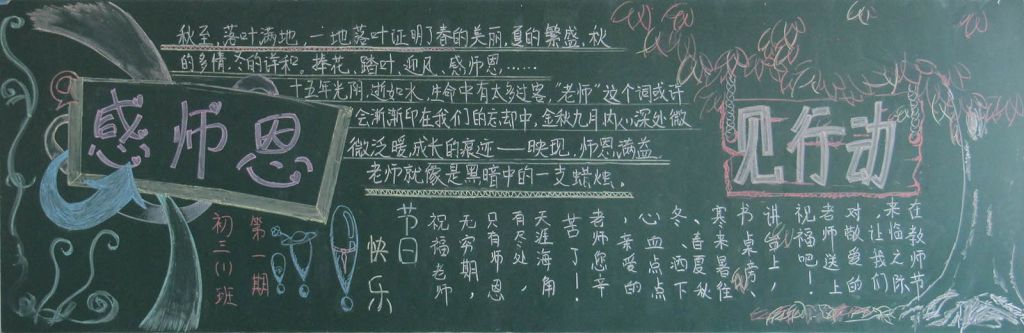 感师恩
见行动
秋至，落叶满地，一地落叶证明了春的美丽，夏的繁盛，秋
的多情，冬的详和。捧花、踏叶、迎风、感师恩……
十五年光阴，逝如水，生命中有太多过客，“老师”这个词或许
会渐渐印在我们的忘却中，金秋九月内心深处微
微泛暖，成长的痕迹——映现，师恩满益。
老师就像是黑暗中的一支蜡烛。
在教师节
来临之际
，让我们
对敬爱的
老师送上
祝福吧！
讲台上，
书桌旁，
寒来暑往
、春夏秋
冬、洒下
心血点点
，亲爱的
老师您辛
苦了！
天涯海角
有尽处，
只有师恩
无穷期，
祝福老师
节日
快乐
第一期
初三(1)班